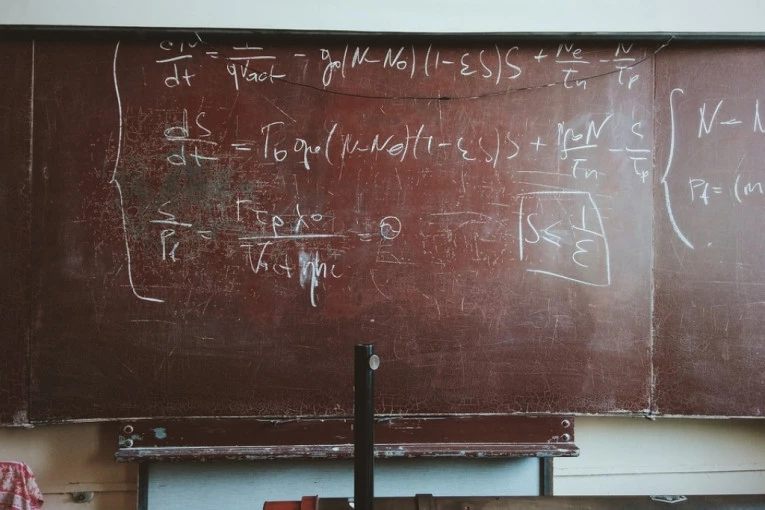 dN/dt = 1/qVact - g₀(N-N₀)(1-εS)S + Ne/τn - N/τp
dS/dt = Γ₀ g₀(N-N₀)(1-εS)S + N/τn - S/τp
S/Pf = Γτpλ₀/Vact ηhc = ϑ
S ≤ 1/ε
N -
Pf = (m